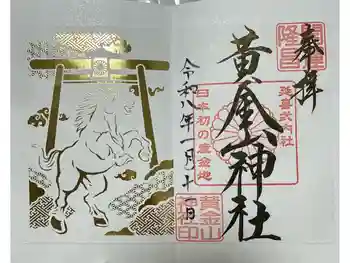 奉拝
黄金山神社
延喜式内社
日本初の産金地
令和八年一月十一日
黄金山
神社印